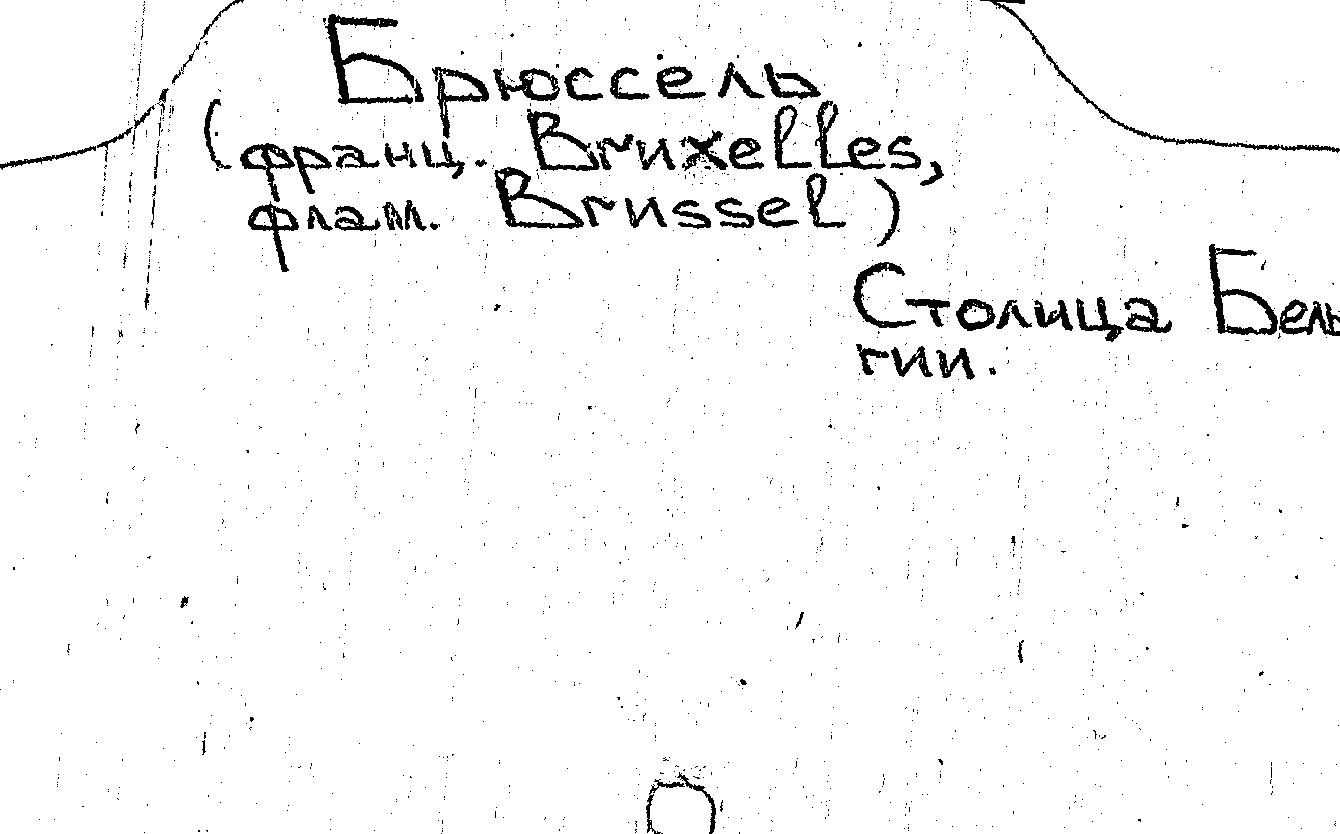 Брюссель
(франц. Bruxelles,
флам. Brussel)
Столица Бель
гии.